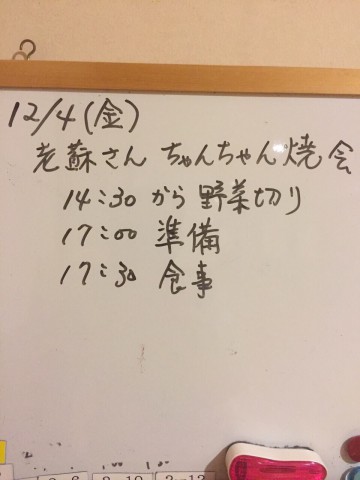 12/4(金)
老蘇さん ちゃんちゃん焼会
14:30 から 野菜切り
17:00 準備
17:30 食事